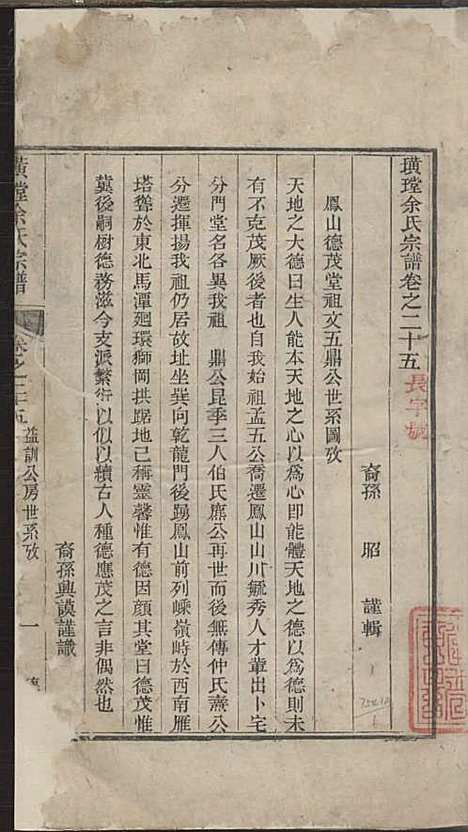 璜瑝余氏宗譜卷之二十五
長字號
裔孫 昭 謹輯
鳳山德茂堂祖文五鼎公世系圖攷
天地之大德曰生人能本天地之心以爲心即能體天地之德以爲德則未
有不克茂厥後者也我自始祖孟五公喬遷鳳山山川毓秀人才輩出卜宅
分門堂名各異我祖 鼎公昆季三人伯氏廌公再世而後無傳仲氏鼒公
分遷揮揚我祖仍居故址坐巽向乾龍門後踴鳳山前列嵊嶺峙於西南雁
塔聳於東北馬潭廻環獅岡拱踞地已稱靈馨惟有德因顏其堂曰德茂惟
冀後嗣樹德務滋今支派繁衍以似以續古人種德應茂之言非偶然也
裔孫興謨謹識
璜瑝余氏宗譜
卷之二十五
益訓公房世系攷
一